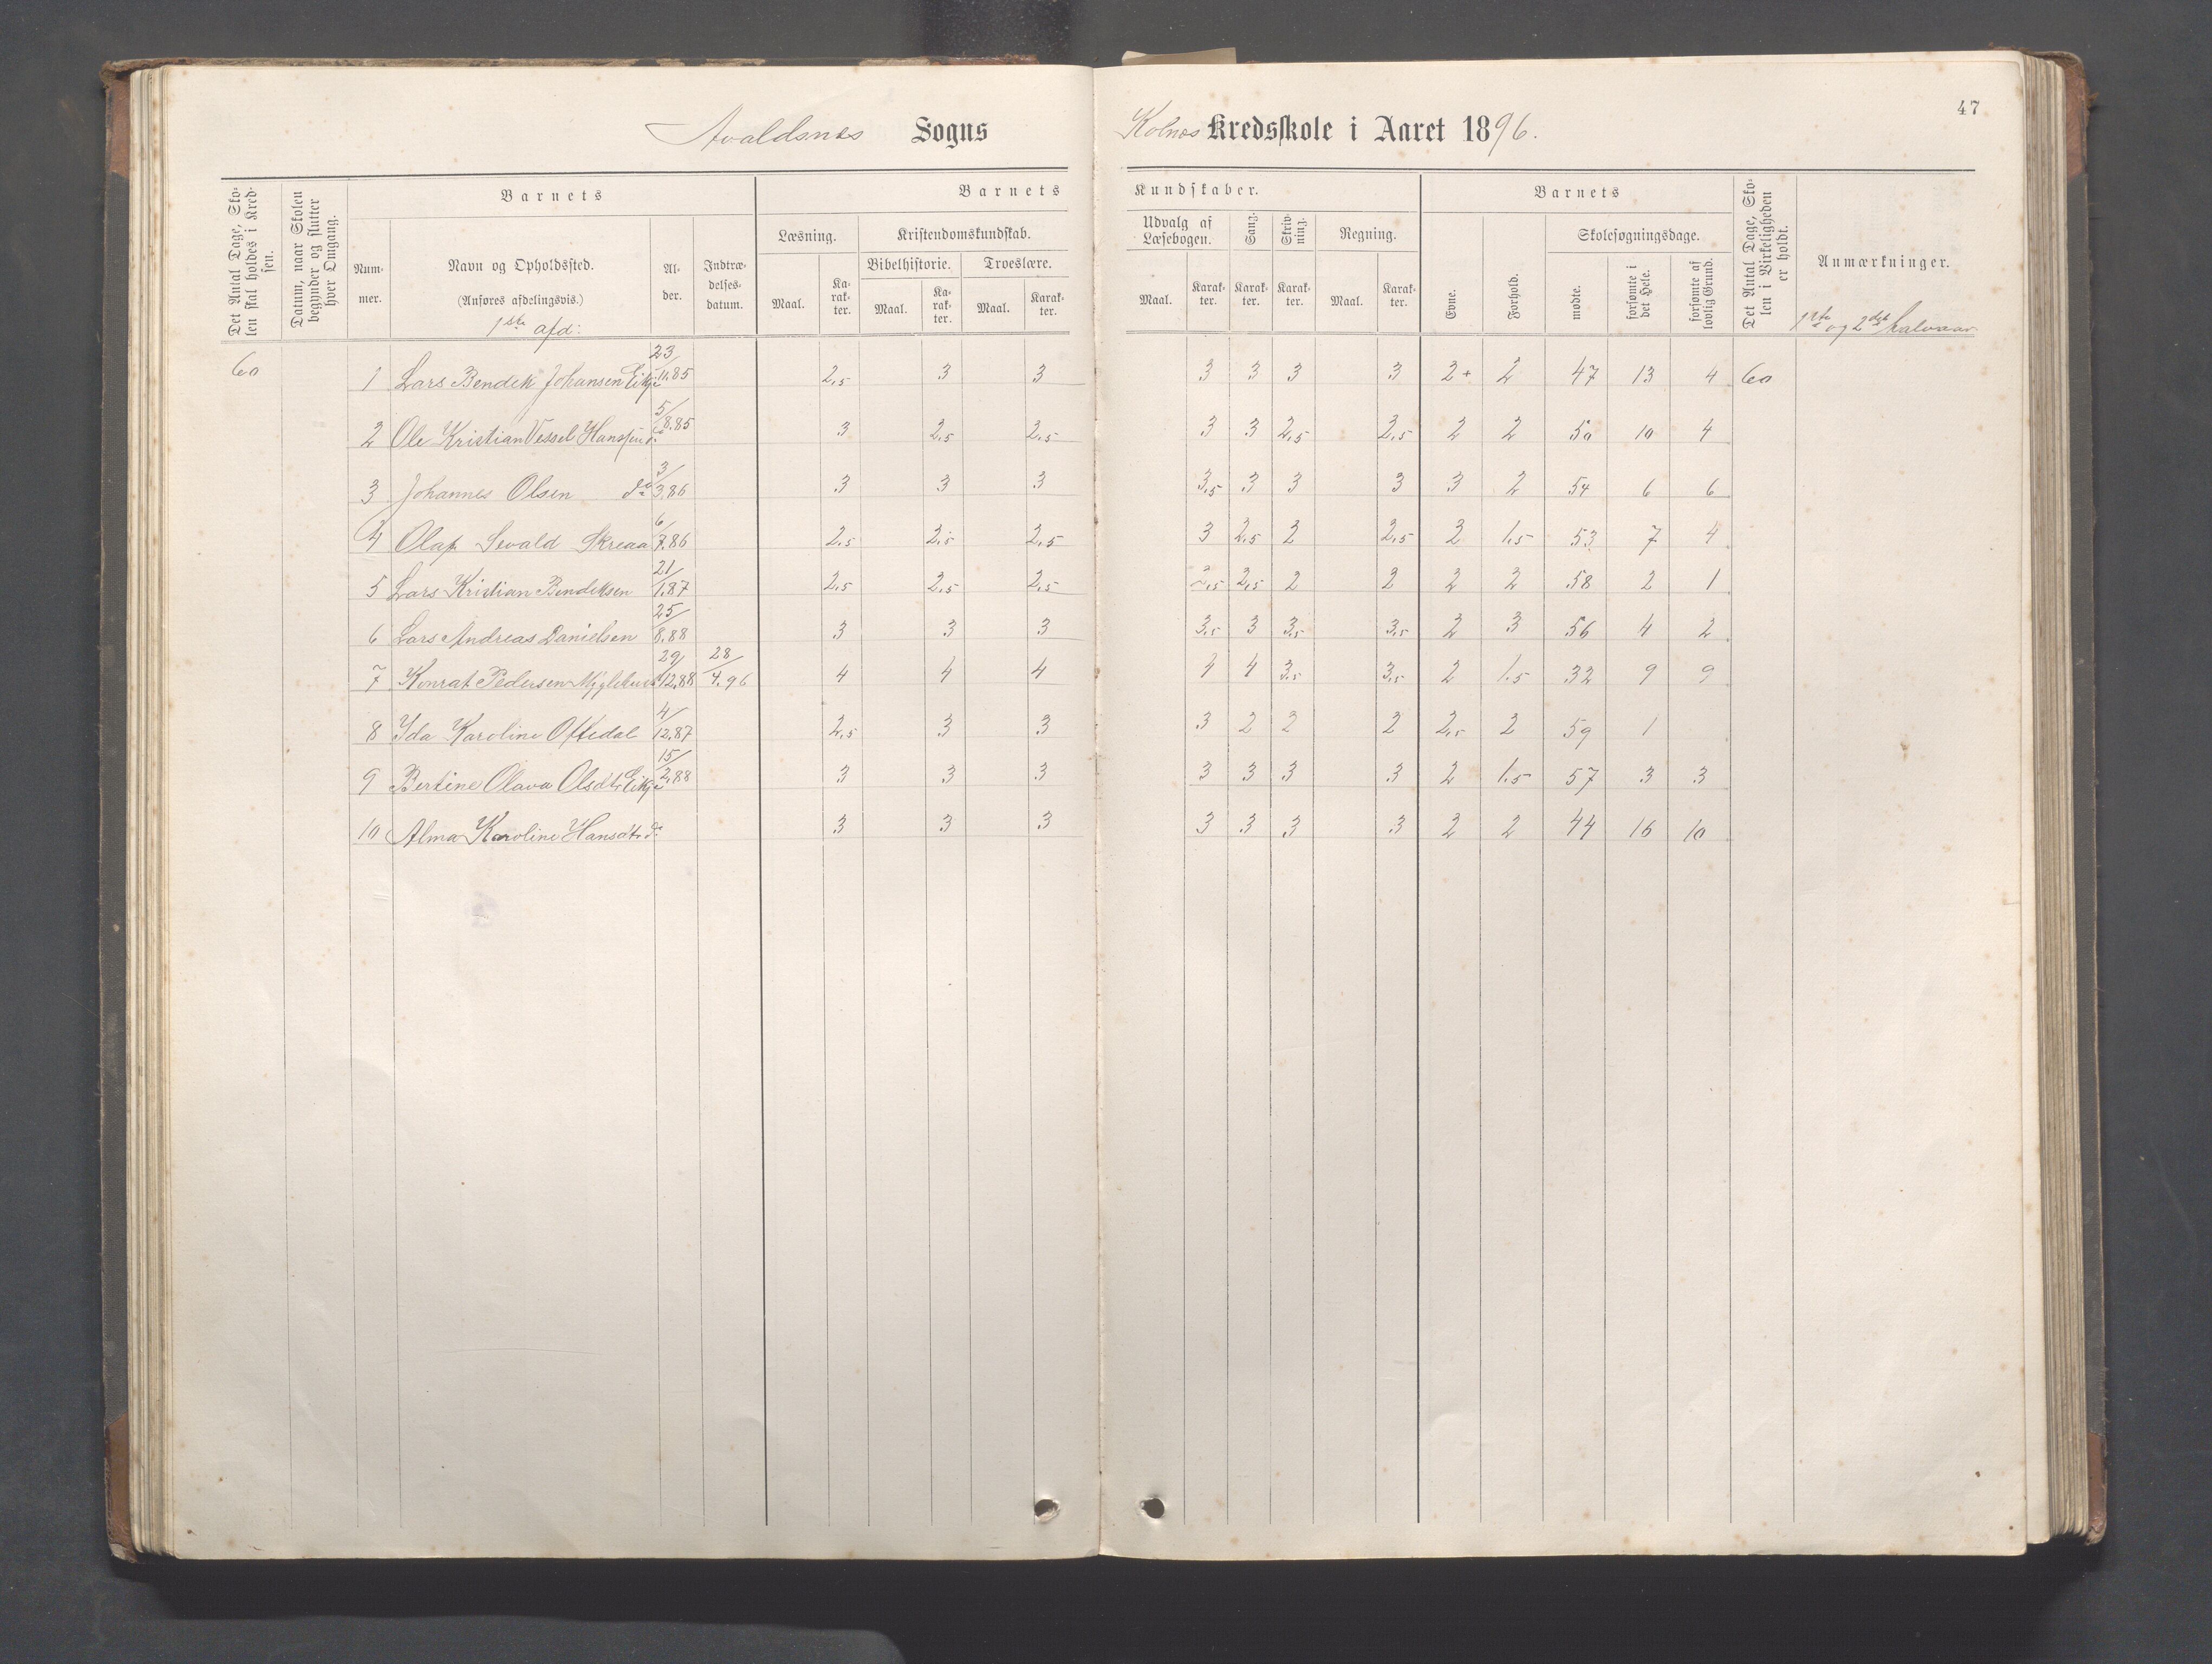 47
Avaldsnes Sogns Kolnes Kredsskole i Aaret 1896.
Det Antal Dage, Skolen skal holdes i Kredsen.
Datum, naar Skolen begynder og slutter hver Omgang.
Barnets
Nummer.
Navn og Opholdssted.
(Anføres afdelingsvis.)
1ste afd:
Alder.
Indtrædelsesdatum.
Barnets Kundskaber.
Læsning.
Maal. Karakter.
Kristendomskundskab.
Bibelhistorie. Troeslære.
Maal. Karakter. Maal. Karakter.
Udvalg af Læsebogen.
Maal. Karakter.
Sang. Karakter.
Skrivning. Karakter.
Regning.
Maal. Karakter.
Barnets
Evne. Forhold.
Skolesøgningsdage.
mødte. forsømte i det Hele. forsømte af lovlig Grund.
Det Antal Dage, Skolen i Virkeligheden er holdt.
Anmærkninger.
1ste og 2det halvaar
60 1 Lars Bendik Johansen Eikje 23/11.85 2,5 3 3 3 3 3 3 2+ 2 47 13 4 60
2 Ole Kristian Vessel Hansen do 5/8.85 3 2,5 2,5 3 3 2,5 2,5 2 2 50 10 4
3 Johannes Olsen do 3/3.86 3 3 3 3,5 3 3 3 3 2 54 6 6
4 Olaf Sevald Skreaa 6/7.86 2,5 2,5 2,5 3 2,5 2 2,5 2 1,5 53 7 4
5 Lars Kristian Bendiksen 21/1.87 2,5 2,5 2,5 2,5 2,5 2 2 2 2 58 2 1
6 Lars Andreas Danielsen 25/8.88 3 3 3 3,5 3 3,5 3,5 2 3 56 4 2
7 Konrat Pedersen 29/12.88 28/4.96 4 4 4 4 4 3,5 3,5 2 1,5 32 9 9
8 Ida Karoline Oftedal 4/12.87 2,5 3 3 3 2 2 2 2,5 2 59 1
9 Bertine Olava Olsdtr Eikje 15/2.88 3 3 3 3 3 3 3 2 1,5 57 3 3
10 Alma Karoline Hansdtr do 3 3 3 3 3 3 3 2 2 44 16 10